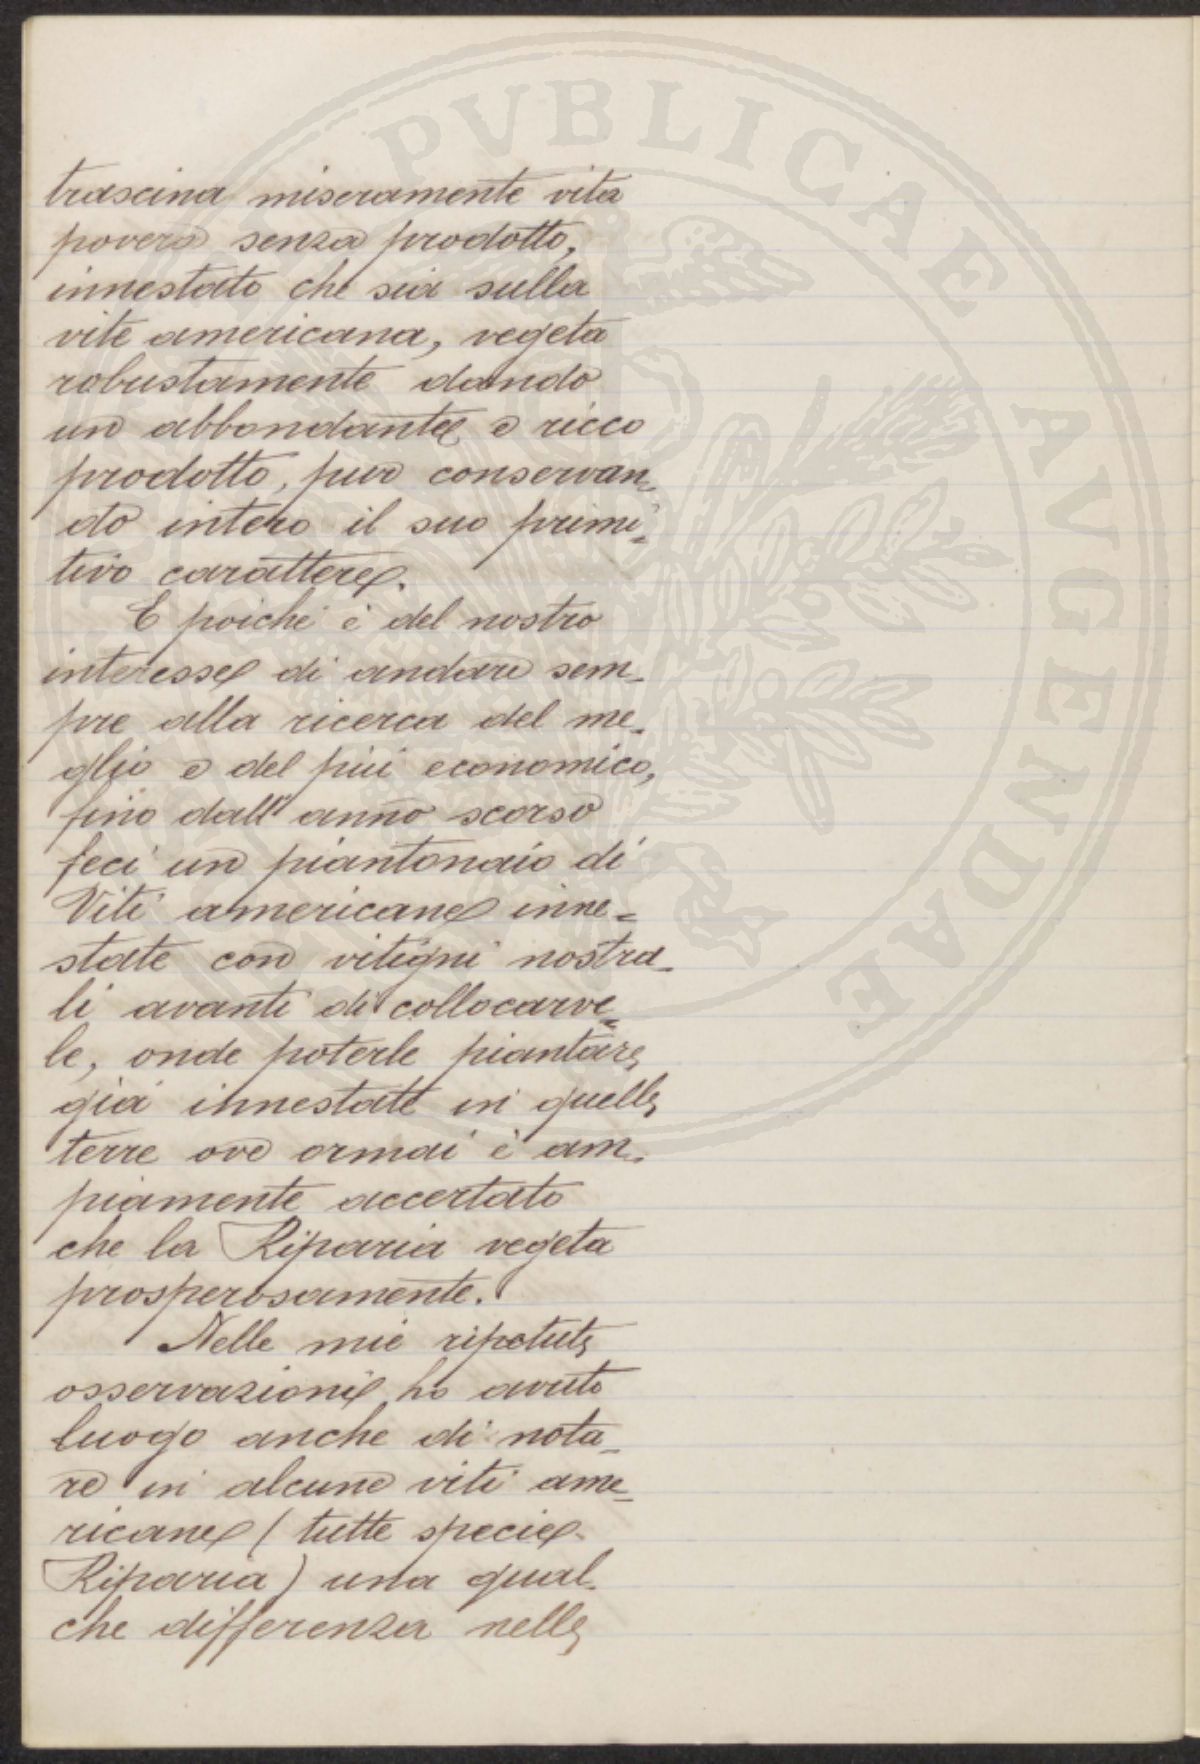 trascina miseramente vita
povera senza prodotto,
innestato che sia sulla
vite americana, vegeta
robustamente dando
un abbondante e ricco
prodotto, pur conservan-
do intero il suo primi=
tivo carattere.
E poichè è del nostro
interesse di andare sem-
pre alla ricerca del me-
glio e del più economico,
fino dall'anno scorso
feci un piantonaio di
Viti americane inne=
state con vitigni nostra-
li avanti di collocarve=
le, onde poterle piantare
già innestate in quelle
terre ove ormai è am-
piamente accertato
che la Riparia vegeta
prosperosamente.
Nelle mie ripetute
osservazioni ho avuto
luogo anche di nota-
re in alcune viti ame-
ricane (tutte specie
Riparia) una qual-
che differenza nelle
PVBLICAE AVGENDAE